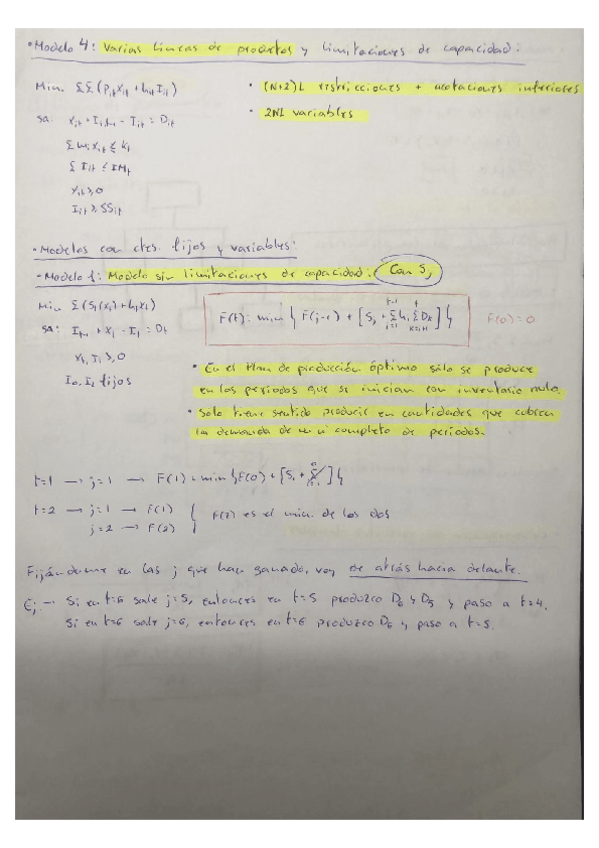 • Modelo 4: Varias líneas de productos y limitaciones de capacidad:
Min. ΣΣ(Pit Xit + hit Iit)
• (N+2)L restricciones + acotaciones inferiores
• 2NL variables
sa: Xit + Ii,t-1 - Iit = Dit
Xit ≥ 0
Iit ≥ SSit
• Modelos con ctes. fijos y variables:
• Modelo 1: Modelo sin limitaciones de capacidad: Con Sj
Σ Iit ≤ IMt
F(0)=0
sa: It-1 + Xt - It = Dt
Xt, It ≥ 0
I0, IL fijos
• En el Plan de producción óptimo sólo se produce
en los periodos que se inician con inventario nulo.
• Solo tiene sentido producir en cantidades que cubren
la demanda de un nº completo de periodos.
t=1 → j=1 → F(1) = min
t=2 → j=1 → F(1)
j=2 → F(2)
F(2) es el min. de los dos
Fijándome en las j que han ganado, voy de atrás hacia delante.
Ej → Si en t=6 sale j=5, entonces en t=5 produzco D6 y D5 y paso a t=4.
Si en t=6 sale j=6, entonces en t=6 produzco D6 y paso a t=5.